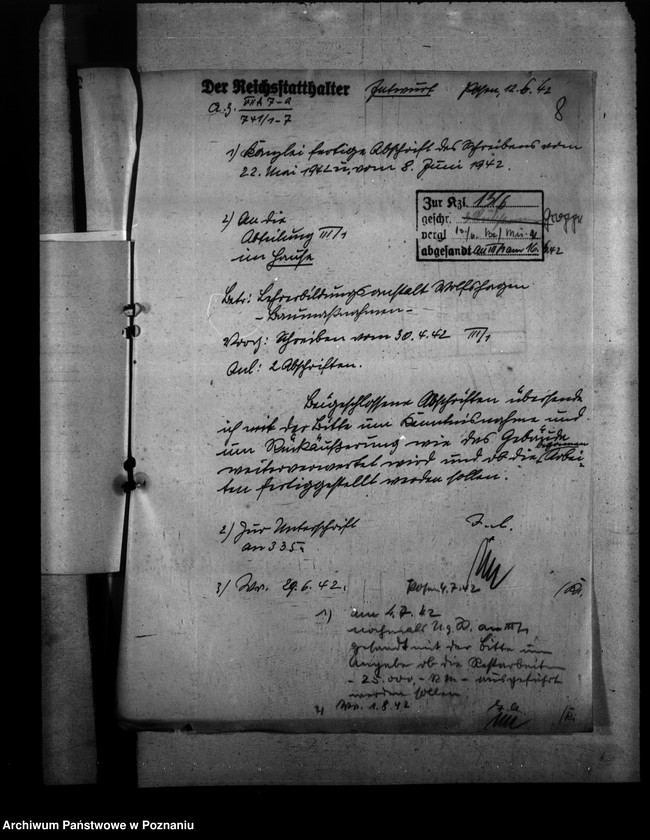 Der Reichsstatthalter Entwurf Posen, 12.6.42
A.Z. VII A 7-a
741/1-7
8
1) Kanzlei fertige Abschrift des Schreibens vom
22. Mai 1942 u. vom 8. Juni 1942.
Zur Kzl. 13/6
geschr.
vergl
abgesandt
2) An die
Abteilung III/1
im Hause
Betr: Lehrerbildungsanstalt Wolfshagen
- Baumaßnahmen -
Vorg: Schreiben vom 30.4.42 III/1
Anl: 2 Abschriften.
Beigeschlossene Abschriften übersende
ich mit der Bitte um Kenntnisnahme und
um Rückäußerung wie das Gebäude
weiterverwertet wird und ob die begonnenen Arbei-
ten fertiggestellt werden sollen.
2) Zur Unterschrift
an 335.
3) Wv. 29.6.42.
Posen 4.7.42
1) am 4.7.42
nochmals U.g.R. an III/1
gesandt mit der Bitte um
Angabe ob die Restarbeiten
- 25.000,- RM - ausgeführt
werden sollen
2) Wv. 1.8.42
Archiwum Państwowe w Poznaniu